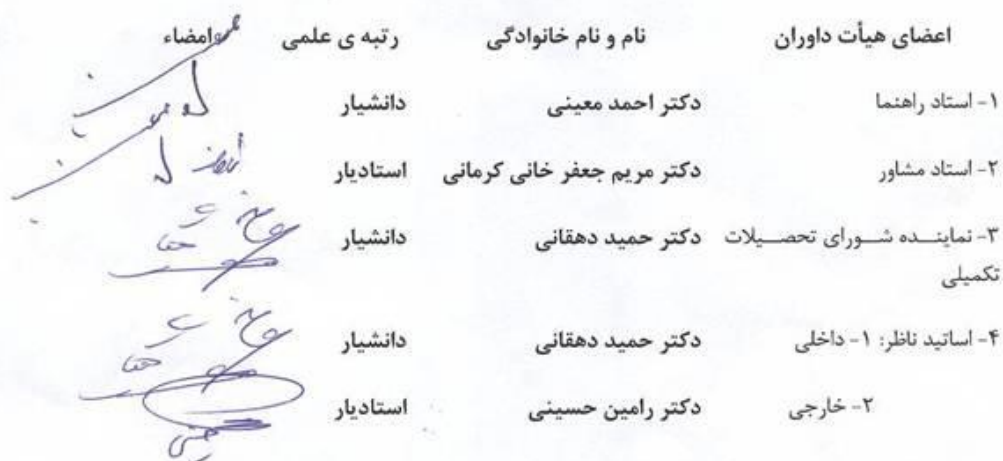 اعضای هیأت داوران نام و نام خانوادگی رتبه ی علمی امضاء
۱- استاد راهنما دکتر احمد معینی دانشیار
۲- استاد مشاور دکتر مریم جعفر خانی کرمانی استادیار
۳- نماینــده شــورای تحصــیلات دکتر حمید دهقانی دانشیار
تکمیلی
۴- اساتید ناظر: ۱- داخلی دکتر حمید دهقانی دانشیار
۲- خارجی دکتر رامین حسینی استادیار